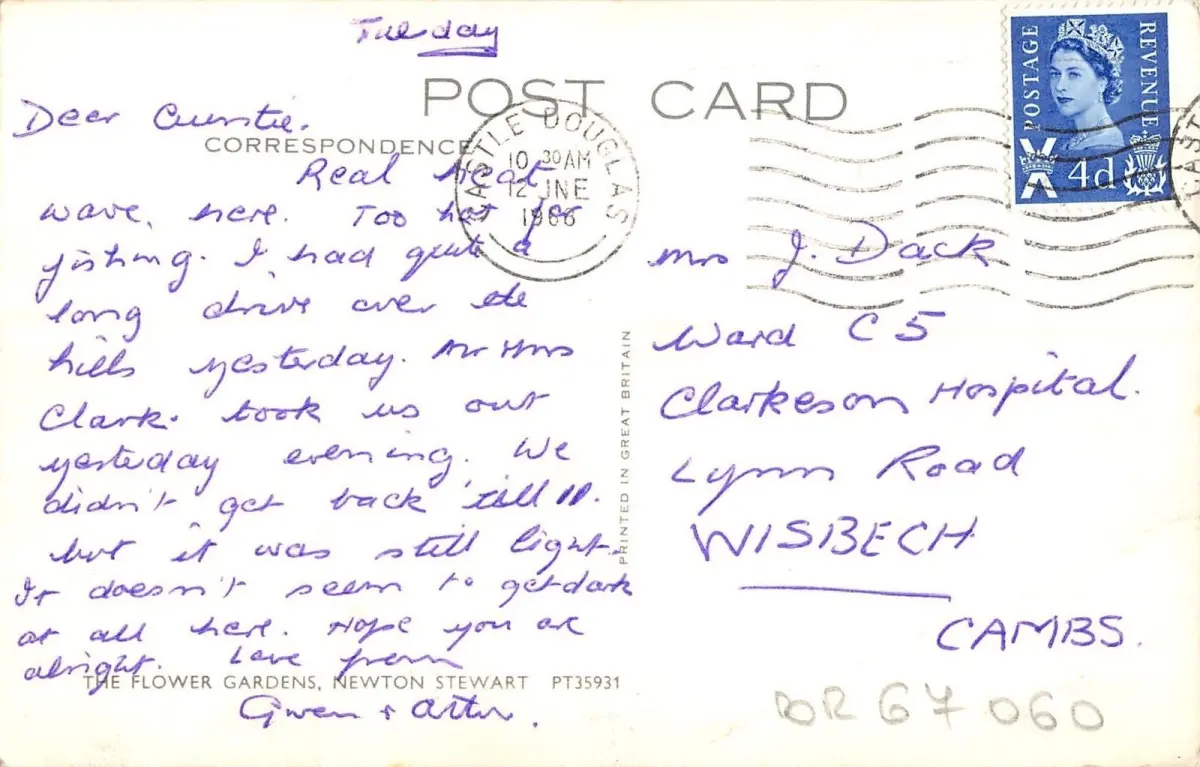 Tuesday
POST CARD
Dear Auntie.
CORRESPONDENCE
Real Heat
wave, here. Too hot for
fishing. I had quite a
long drive over the
hills yesterday. Mr Mrs
Clark. took us out
yesterday evening. We
didn't get back, till 11.
but it was still light.
It doesn't seem to get dark
at all here. Hope you are
alright. Love from
THE FLOWER GARDENS, NEWTON STEWART PT35931
Gwen + Arthur.
PRINTED IN GREAT BRITAIN
CASTLE DOUGLAS
10 30AM
12 JNE
POSTAGE REVENUE
4d
Mrs J. Dack
Ward C5
Clarkeson Hospital.
Lynn Road
WISBECH
CAMBS.
67 060